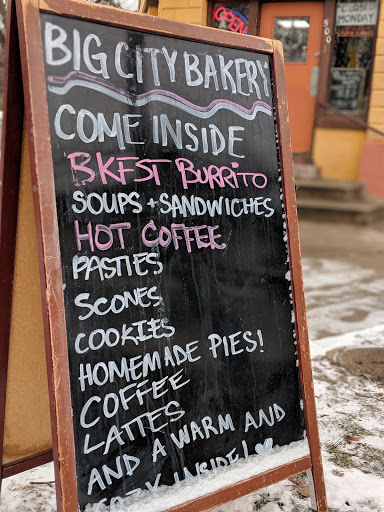 BIG CITY BAKERY
COME INSIDE
BKFST BURRITO
SOUPS + SANDWICHES
HOT COFFEE
PASTIES
SCONES
COOKIES
HOMEMADE PIES!
COFFEE
LATTES
AND A WARM AND
COZY INSIDE! ♥
OPEN
CLOSED
MONDAY
500